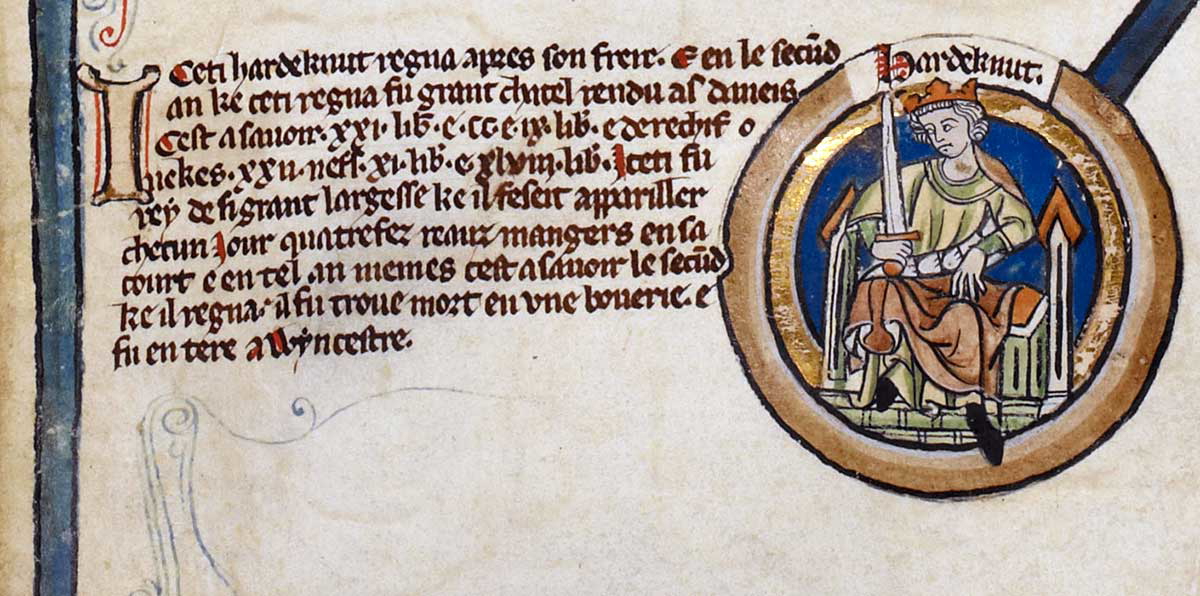 Iceti hardeknut regna apres son frere. E en le secūd
an ke ceti regna fu grant chatel rendu as daneis
Cest a savoir. xxi. lib̄. e. cc. e. ix. lib̄. e derechif o
xxii. neff. xi. lib̄. e. xlviii. lib̄. Iceti fu
rey de si grant largesse ke il feseit appariller
checun Jour quatrefez reauz mangers en sa
court e en tel an memes cest a savoir le secūd
ke il regna. il fu trove mort en vne boverie. e
fu en tere a Wyncestre.
Hardeknut.